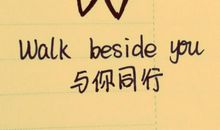 Walk beside you
与你同行